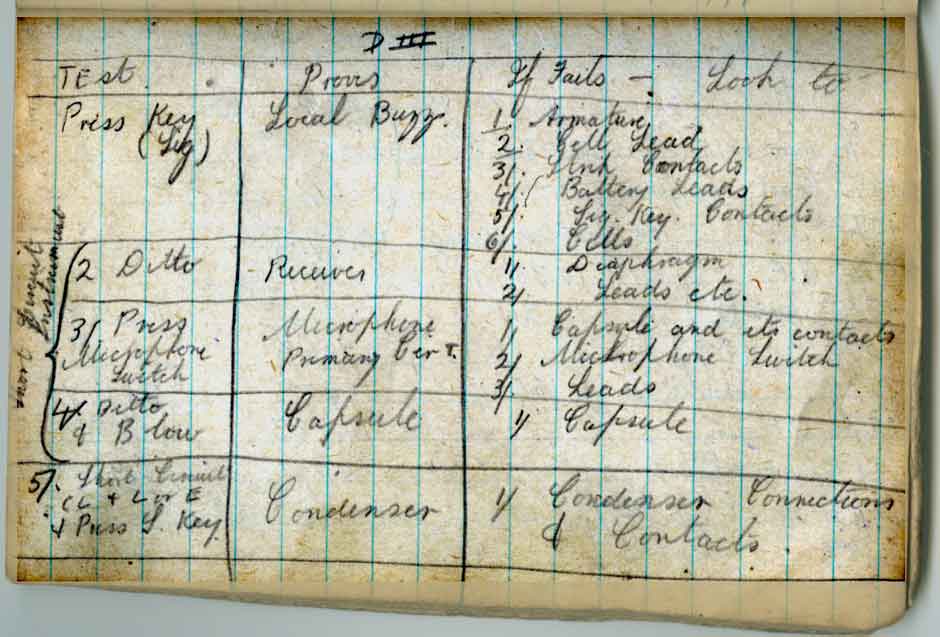 D III
TEst. Proves If Fails — Look to
Press Key Local Buzz. 1. Armature
(Sig) 2. Cell Lead
3/. Link Contacts
4/. Battery Leads
5/. Sig. Key. Contacts
6/. Cells
Short Circuit
Instrument
2 Ditto Receiver 1/. Diaphragm
2/ Leads etc.
3/ Press Microphone 1/ Capsule and its contacts
Microphone Primary Circt. 2/ Microphone Switch
Switch 3/ Leads
4/ Ditto Capsule 1/ Capsule
& Blow
5/. Short Circuit Condenser 1/ Condenser Connections
CL & L or E & Contacts
& Press S. Key.